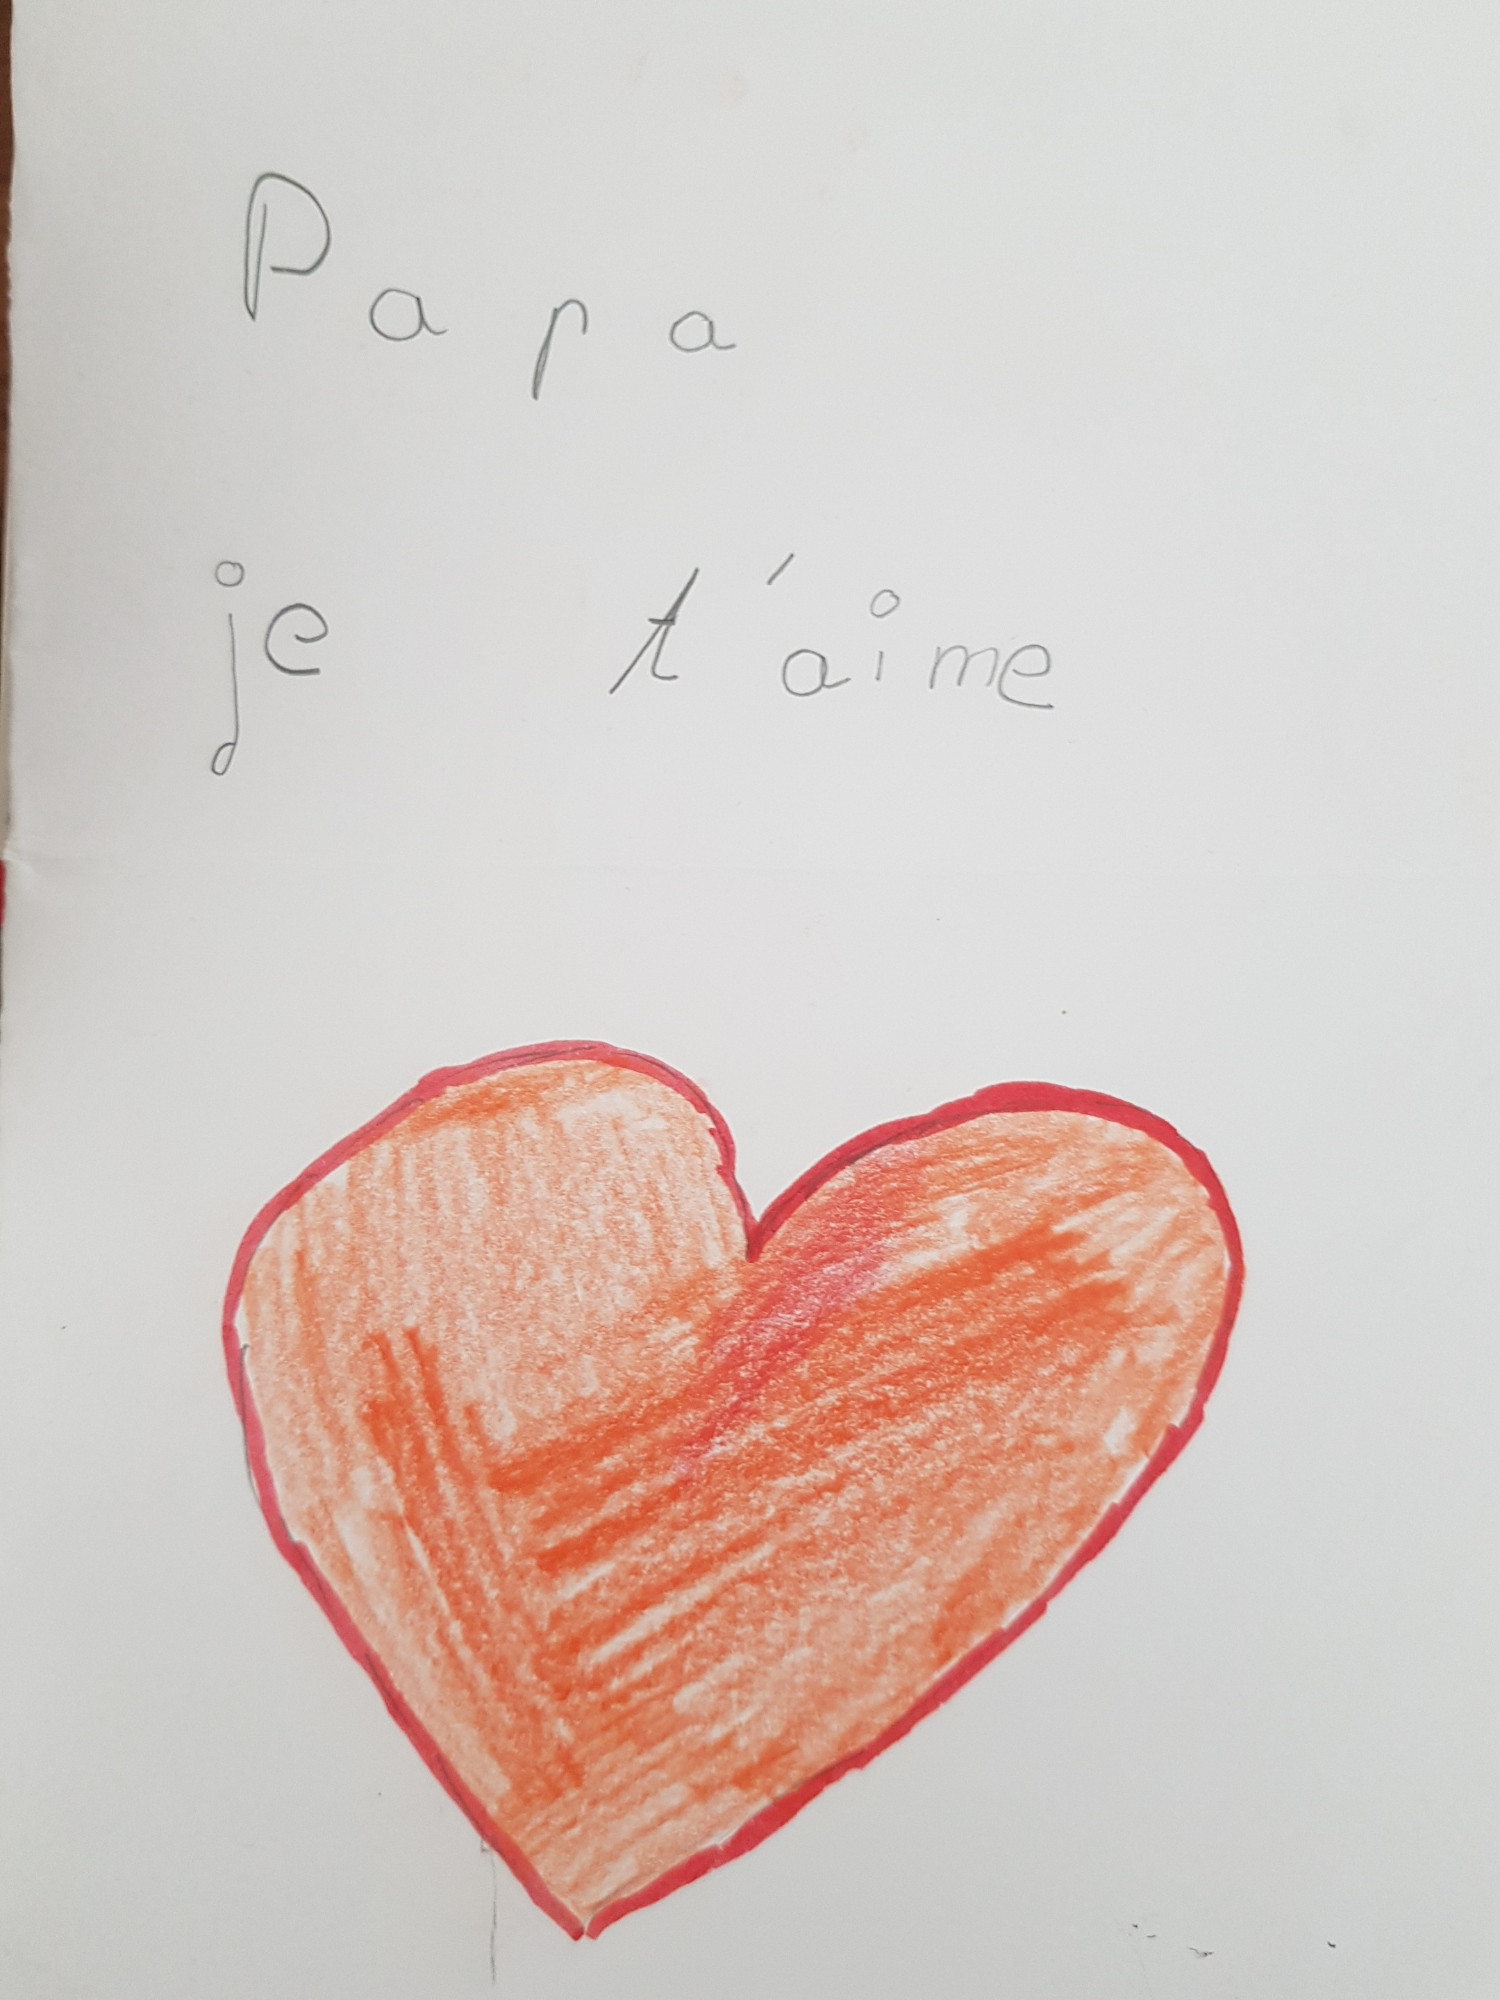 Papa
je t'aime